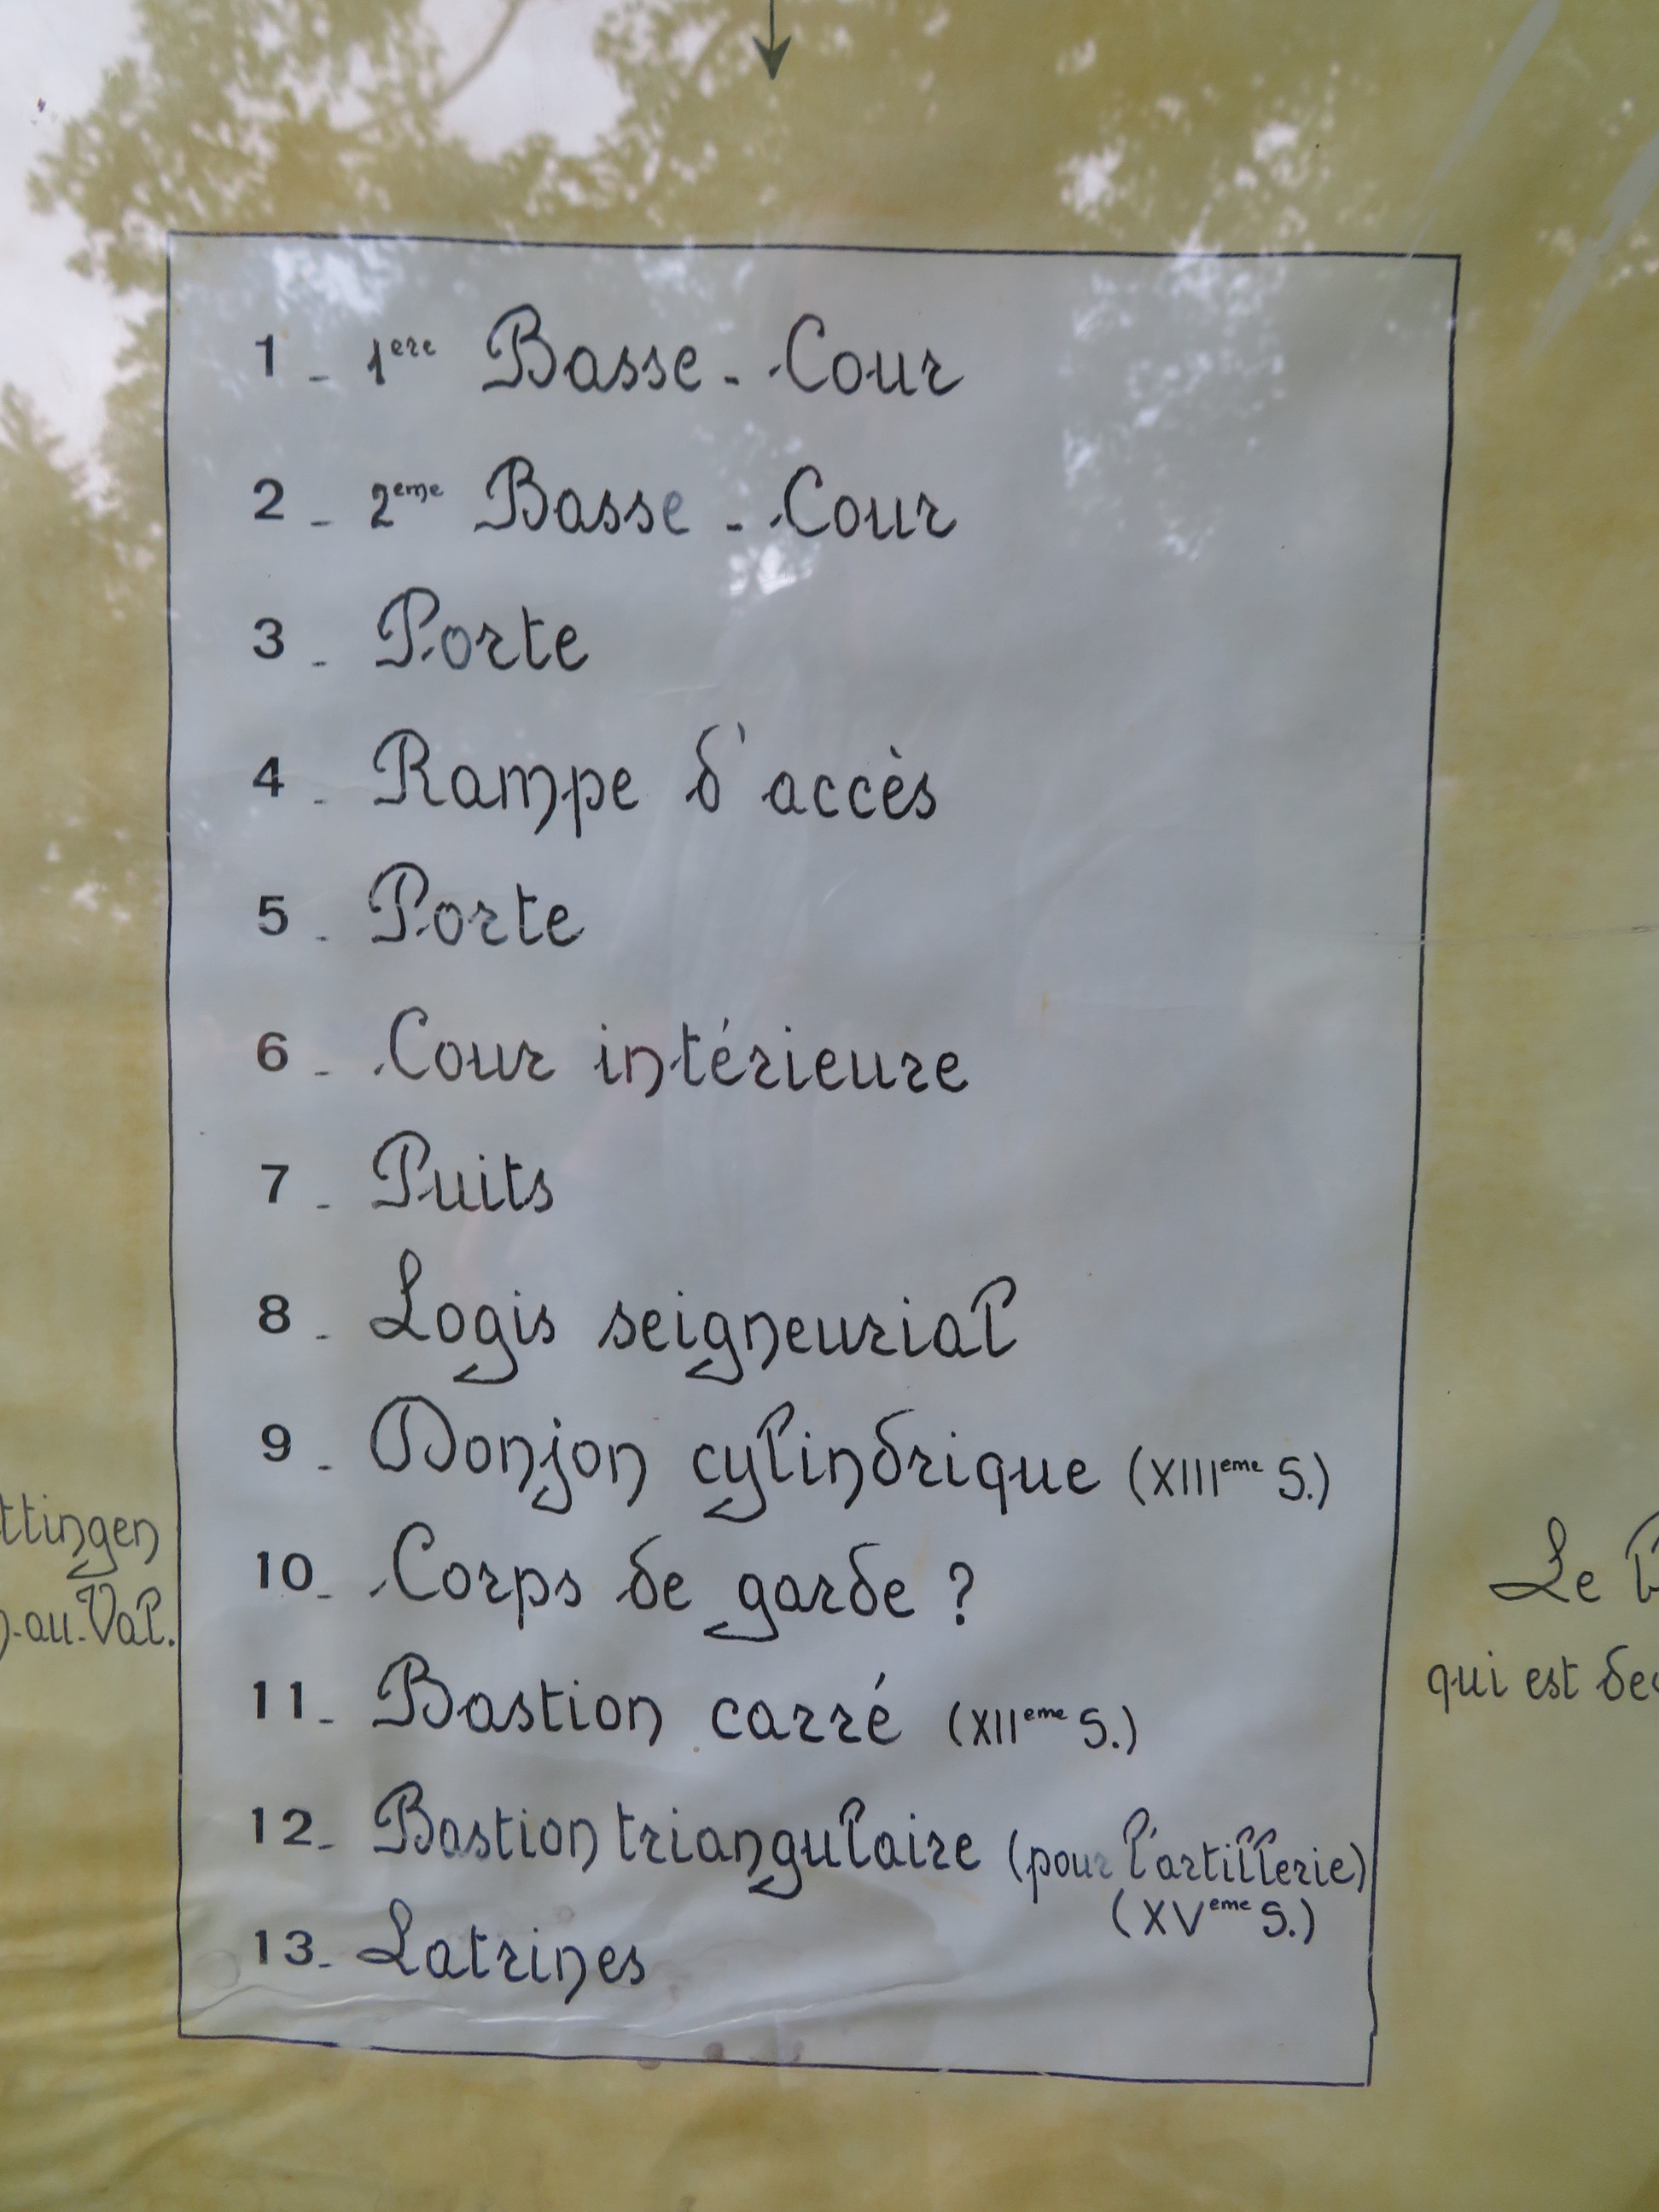 1 - 1ere Basse-Cour
2 - 2eme Basse-Cour
3 - Porte
4 - Rampe d'accès
5 - Porte
6 - Cour intérieure
7 - Puits
8 - Logis seigneurial
9 - Donjon cylindrique (XIIIeme S.)
10 - Corps de garde ?
11 - Bastion carré (XIIeme S.)
12 - Bastion triangulaire (pour l'artillerie)
(XVeme S.)
13 - Latrines
ttingen
-au-Val.
Le
qui est